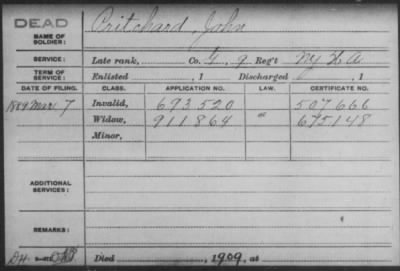 DEAD
NAME OF SOLDIER: Pritchard, John
SERVICE: Late rank, Co. G, 9 Reg't NY H A
TERM OF SERVICE: Enlisted , 1 Discharged , 1
DATE OF FILING. CLASS. APPLICATION NO. LAW. CERTIFICATE NO.
1889 Mar 7 Invalid, 693520 507666
Widow, 911864 675148
Minor,
ADDITIONAL SERVICES:
REMARKS:
Died , 1909, at